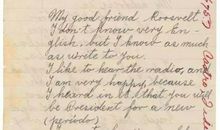 My good friend Roosvelt
I don't know very En-
glish, but I know as much
as write to you.
I like to hear the radio, and
I am very happy, because
I heard in it that you will
be President for a new
(periodo)